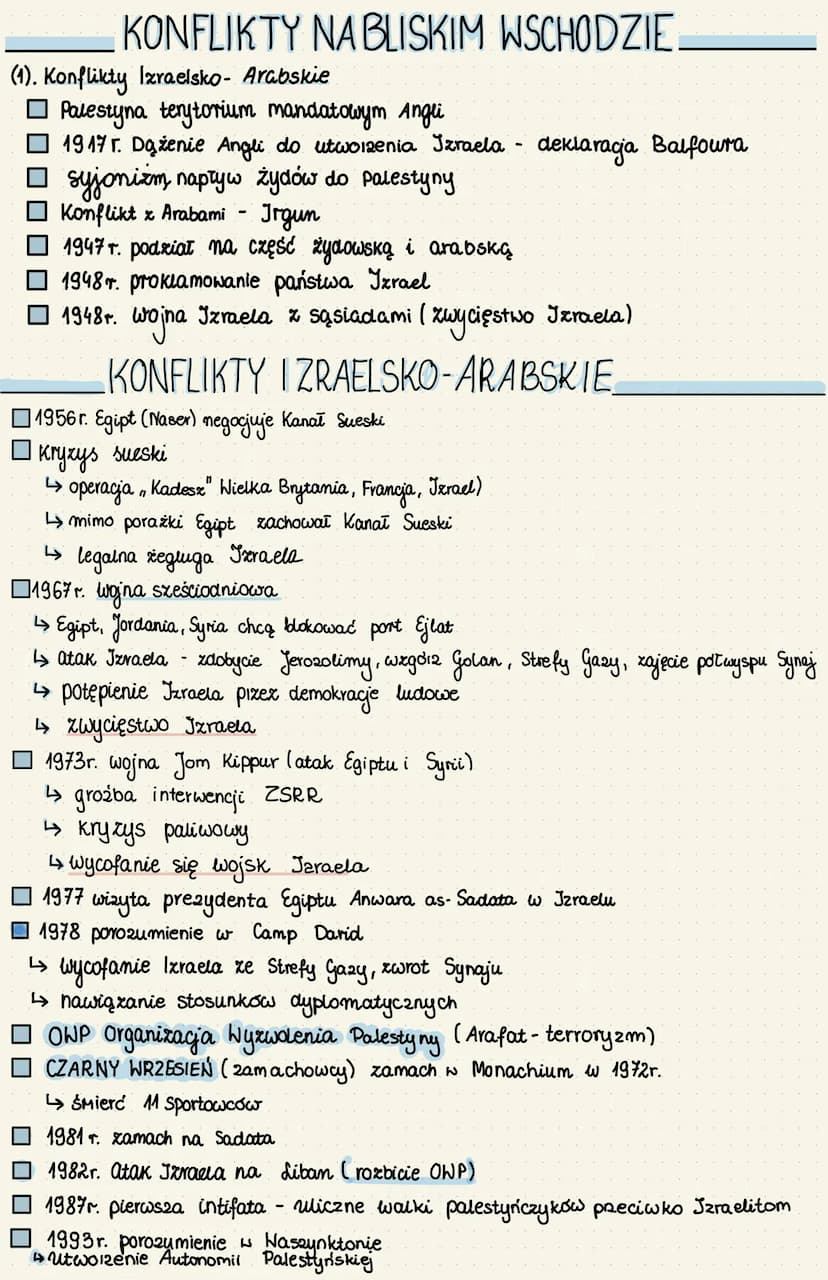 KONFLIKTY NA BLISKIM WSCHODZIE
(1). Konflikty Izraelsko- Arabskie
Palestyna terytorium mandatowym Angli
1917r. Dążenie Angli do utworzenia Izraela - deklaracja Balfoura
syjonizm napływ żydów do Palestyny
Konflikt z Arabami - Irgun
1947r. podział na część żydowską i arabską
1948r. proklamowanie państwa Izrael
1948r. wojna Izraela z sąsiadami (zwycięstwo Izraela)
KONFLIKTY IZRAELSKO-ARABSKIE
1956r. Egipt (Naser) negocjuje Kanał Sueski
Kryzys sueski
↳ operacja „Kadesz" Wielka Brytania, Francja, Izrael)
↳ mimo porażki Egipt zachował Kanał Sueski
↳ legalna żegluga Izraela
1967r. wojna sześciodniowa
↳ Egipt, Jordania, Syria chcą blokować port Ejlat
↳ atak Izraela - zdobycie Jerozolimy, wzgórz Golan, Strefy Gazy, zajęcie półwyspu Synaj
↳ potępienie Izraela przez demokracje ludowe
↳ zwycięstwo Izraela
1973r. wojna Jom Kippur (atak Egiptu i Syrii)
↳ groźba interwencji ZSRR
↳ kryzys paliwowy
↳ wycofanie się wojsk Izraela
1977 wizyta prezydenta Egiptu Anwara as-Sadata w Izraelu
1978 porozumienie w Camp David
↳ wycofanie Izraela ze Strefy Gazy, zwrot Synaju
↳ nawiązanie stosunków dyplomatycznych
OWP Organizacja Wyzwolenia Palestyny (Arafat - terroryzm)
CZARNY WRZESIEŃ (zamachowcy) zamach w Monachium w 1972r.
↳ śmierć 11 sportowców
1981r. zamach na Sadata
1982r. atak Izraela na Liban (rozbicie OWP)
1987r. pierwsza intifata - uliczne walki palestyńczyków przeciwko Izraelitom
1993r. porozumienie w Waszynktonie
↳ utworzenie Autonomii Palestyńskiej